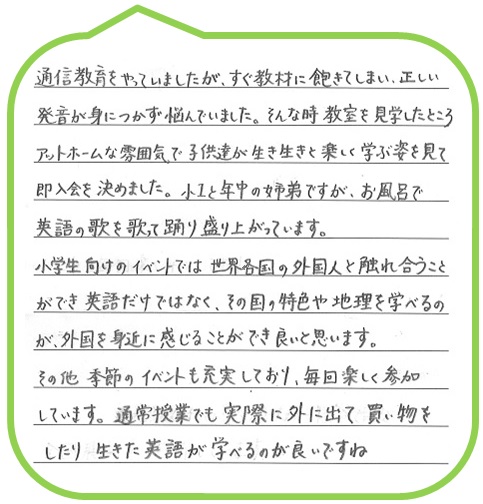 通信教育をやっていましたが、すぐ教材に飽きてしまい、正しい
発音が身につかず悩んでいました。そんな時教室を見学したところ
アットホームな雰囲気で子供達が生き生きと楽しく学ぶ姿を見て
即入会を決めました。小1と年中の姉弟ですが、お風呂で
英語の歌を歌って踊り盛り上がっています。
小学生向けのイベントでは世界各国の外国人と触れ合うこと
ができ英語だけではなく、その国の特色や地理を学べるの
が、外国を身近に感じることができ良いと思います。
その他季節のイベントも充実しており、毎回楽しく参加
しています。通常授業でも実際に外に出て買い物を
したり生きた英語が学べるのが良いですね